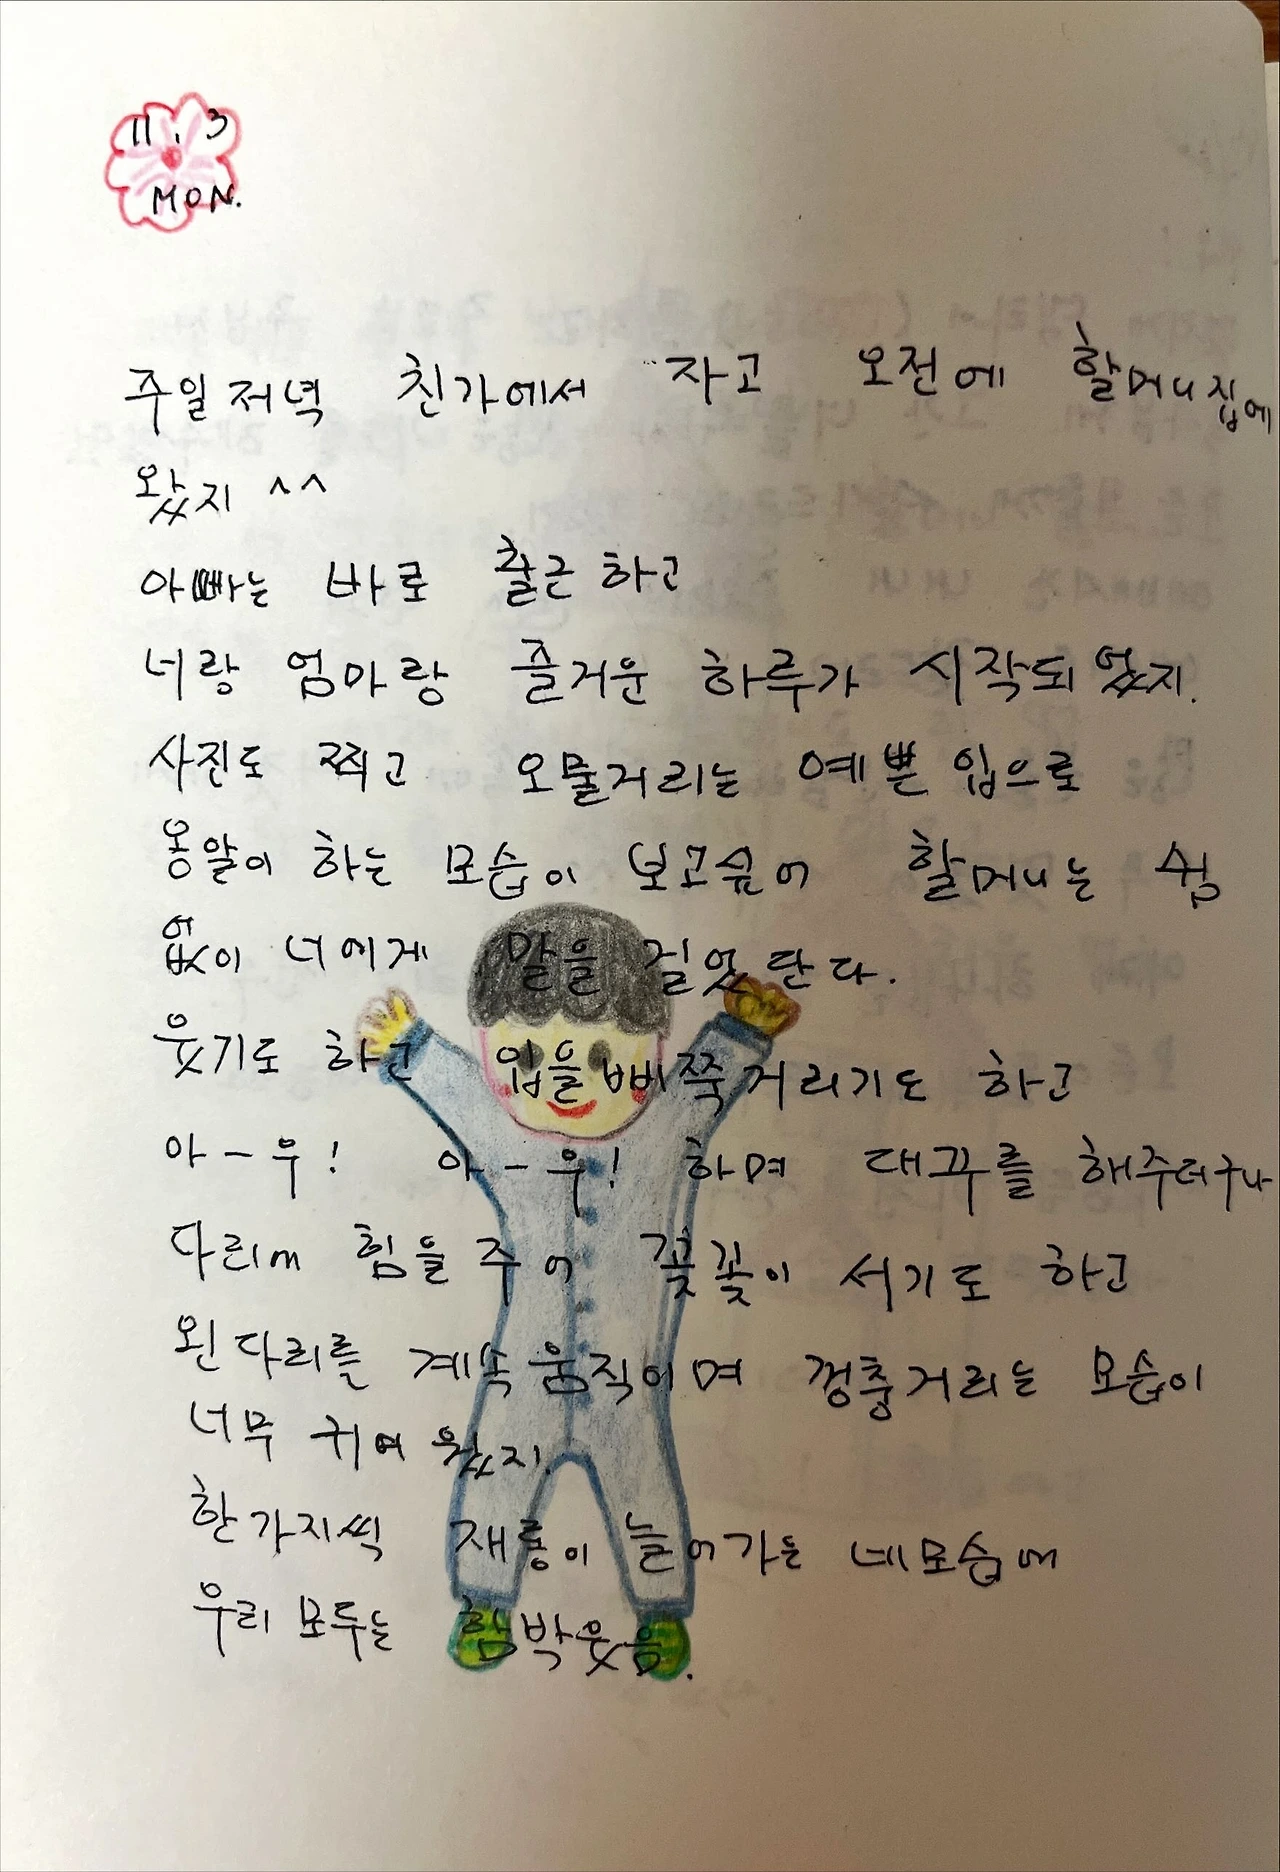 11.3
MON.
주일저녁 친가에서 자고 오전에 할머니집에
왔지 ^^
아빠는 바로 출근하고
너랑 엄마랑 즐거운 하루가 시작되었지.
사진도 찍고 오물거리는 예쁜 입으로
옹알이 하는 모습이 보고싶어 할머니는 쉼
없이 너에게 말을 걸었단다.
웃기도 하고 입을 삐쭉거리기도 하고
아-우! 아-우! 하며 대꾸를 해주더구나
다리에 힘을 주어 꽂꽂이 서기도 하고
왼다리를 계속 움직이며 껑충거리는 모습이
너무 귀여웠지.
한가지씩 재롱이 늘어가는 네모습에
우리 모두는 함박웃음.